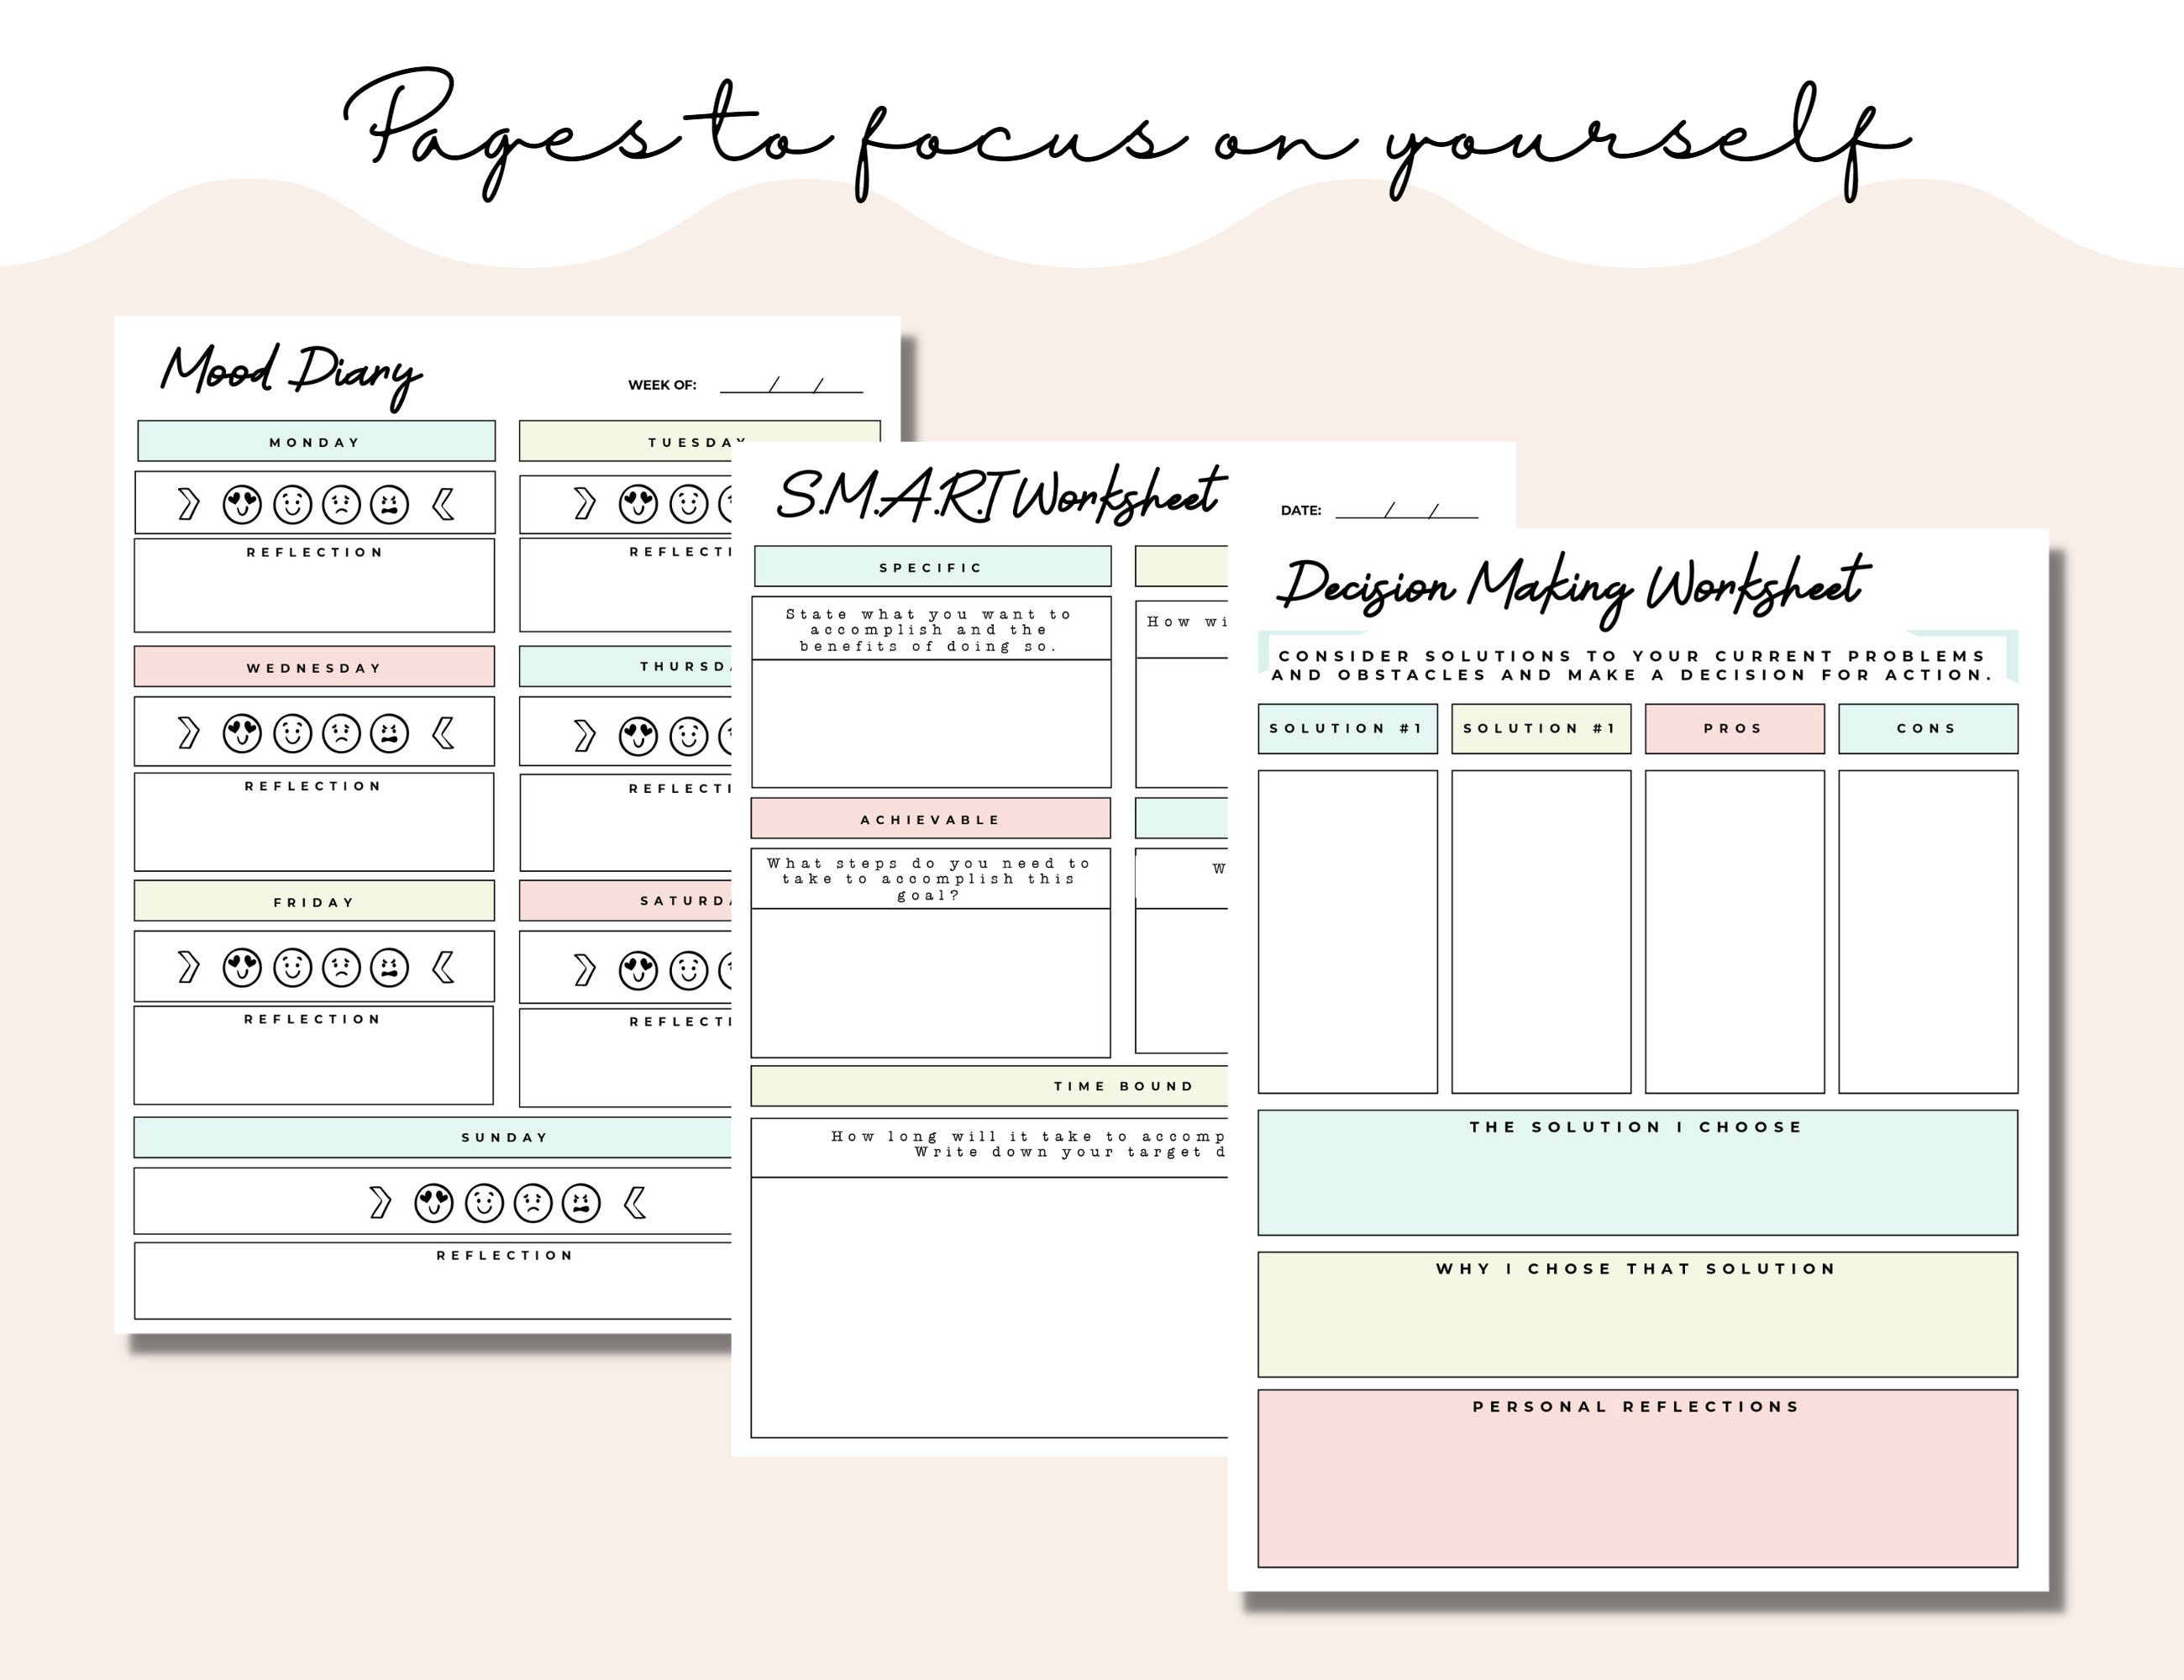 Pages to focus on yourself
Mood Diary
WEEK OF: / /
MONDAY
TUESDAY
REFLECTION
REFLECTI
WEDNESDAY
THURSDA
REFLECTION
REFLECTI
FRIDAY
SATURDA
REFLECTION
REFLECTI
SUNDAY
REFLECTION
S.M.A.R.T Worksheet
DATE: / /
SPECIFIC
State what you want to
accomplish and the
benefits of doing so.
How wi
ACHIEVABLE
What steps do you need to
take to accomplish this
goal?
W
TIME BOUND
How long will it take to accomp
Write down your target d
Decision Making Worksheet
CONSIDER SOLUTIONS TO YOUR CURRENT PROBLEMS
AND OBSTACLES AND MAKE A DECISION FOR ACTION.
SOLUTION #1
SOLUTION #1
PROS
CONS
THE SOLUTION I CHOOSE
WHY I CHOSE THAT SOLUTION
PERSONAL REFLECTIONS